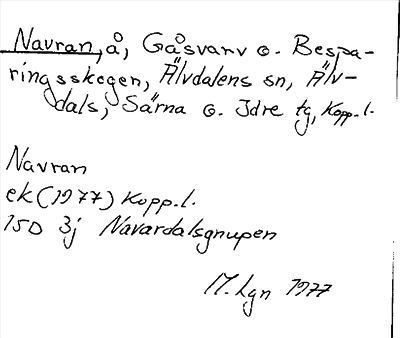 Navran, å, Gåsvarv o. Bespa-
ringsskogen, Älvdalens sn, Älv-
dals, Särna o. Idre tg, Kopp.l.
Navran
ek (1977) Kopp.l.
15D 3j Navardalsgnupen
M. Lgn 1977